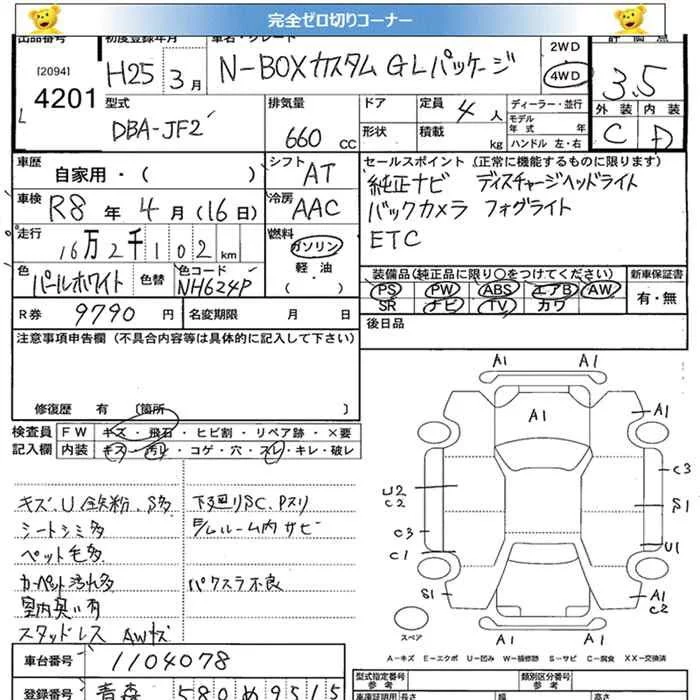 完全ゼロ切りコーナー
出品番号 初度登録年月 車名・グレード
[2094]
4201
H25 3月
N-BOXカスタム GLパッケージ
2WD
4WD
評価点
3.5
外装 内装
C D
型式
DBA-JF2
排気量
660 CC
ドア
形状
定員 4人
積載 kg
ディーラー・並行
モデル年式 年式
ハンドル 左・右
車歴
自家用・( )
シフト AT
車検 R8年 4月(16日)
冷房 AAC
走行 16万2千102km
燃料
ガソリン
軽油
( )
色 パールホワイト 色替
色コード NH624P
セールスポイント (正常に機能するものに限ります)
純正ナビ ディスチャージヘッドライト
バックカメラ フォグライト
ETC
装備品(純正品に限り○をつけてください) 新車保証書
PS PW ABS エアB AW
SR ナビ TV カワ
有・無
R券 9790円 名変期限 月 日
後日品
注意事項申告欄 (不具合内容等は具体的に記入して下さい)
修復歴 有 〔箇所 〕
検査員記入欄
FW キズ・飛石・ヒビ割・リペア跡・×要
内装 キズ・汚レ・コゲ・穴・スレ・キレ・破レ
キズ、U 鉄粉、S多 下廻りSC、Pスリ
シートシミ多 ルーム内サビ
ペット毛多
カーペット汚れ多 パワスラ不良
室内臭い有
スタッドレス AWキズ
A1 A1
A1
A1
U2
C2
C3
S1
C3
C1
U1
S1
A1
C2
A1 A1
スペア
A-キズ E-エクボ U-凹み W-補修跡 S-サビ C-腐食 XX-交換済
車台番号 1104078
登録番号 青森 580 め 9515
型式指定番号
参考
類別区分番号
参考
車庫証明用 長さ 幅 高さ